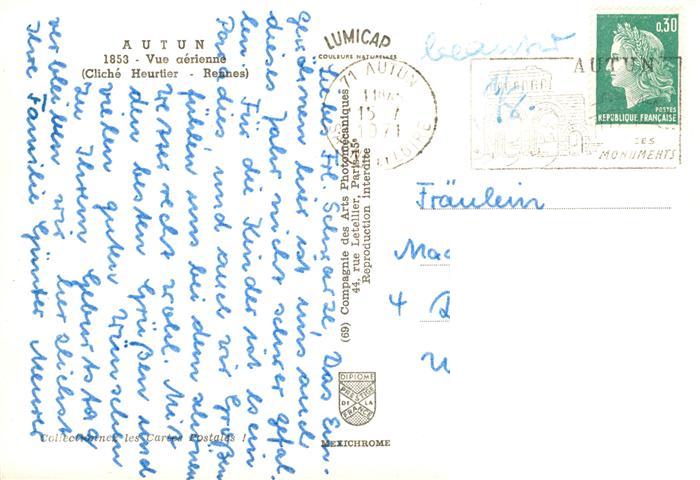 AUTUN
1853 - Vue aérienne
(Cliché Heurtier - Rennes)
LUMICAP
COULEURS NATURELLES
71 AUTUN
15-7
1971
AUTUN
SES
MONUMENTS
0,30
POSTES
RÉPUBLIQUE FRANÇAISE
Liebes Frl. Schwarze! Das Ein-
gewöhnen hier ist uns auch
dieses Jahr nicht schwer gefal-
len. Für die Kinder ist es ein
Paradies und auch wir Großen
fühlen uns bei dem schönen
Wetter recht wohl. Mit
den besten Grüßen und
vielen guten Wünschen
zu Ihrem Geburtstag
verbleiben wir herzlichst
Ihre Familie Günter
(69) Compagnie des Arts Photomécaniques
44, rue Letellier, Paris-15e
Reproduction interdite
Fräulein
4
DIPLOME
PRESTIGE
DE LA
FRANCE
MEXICHROME
Collectionnez les Cartes Postales !